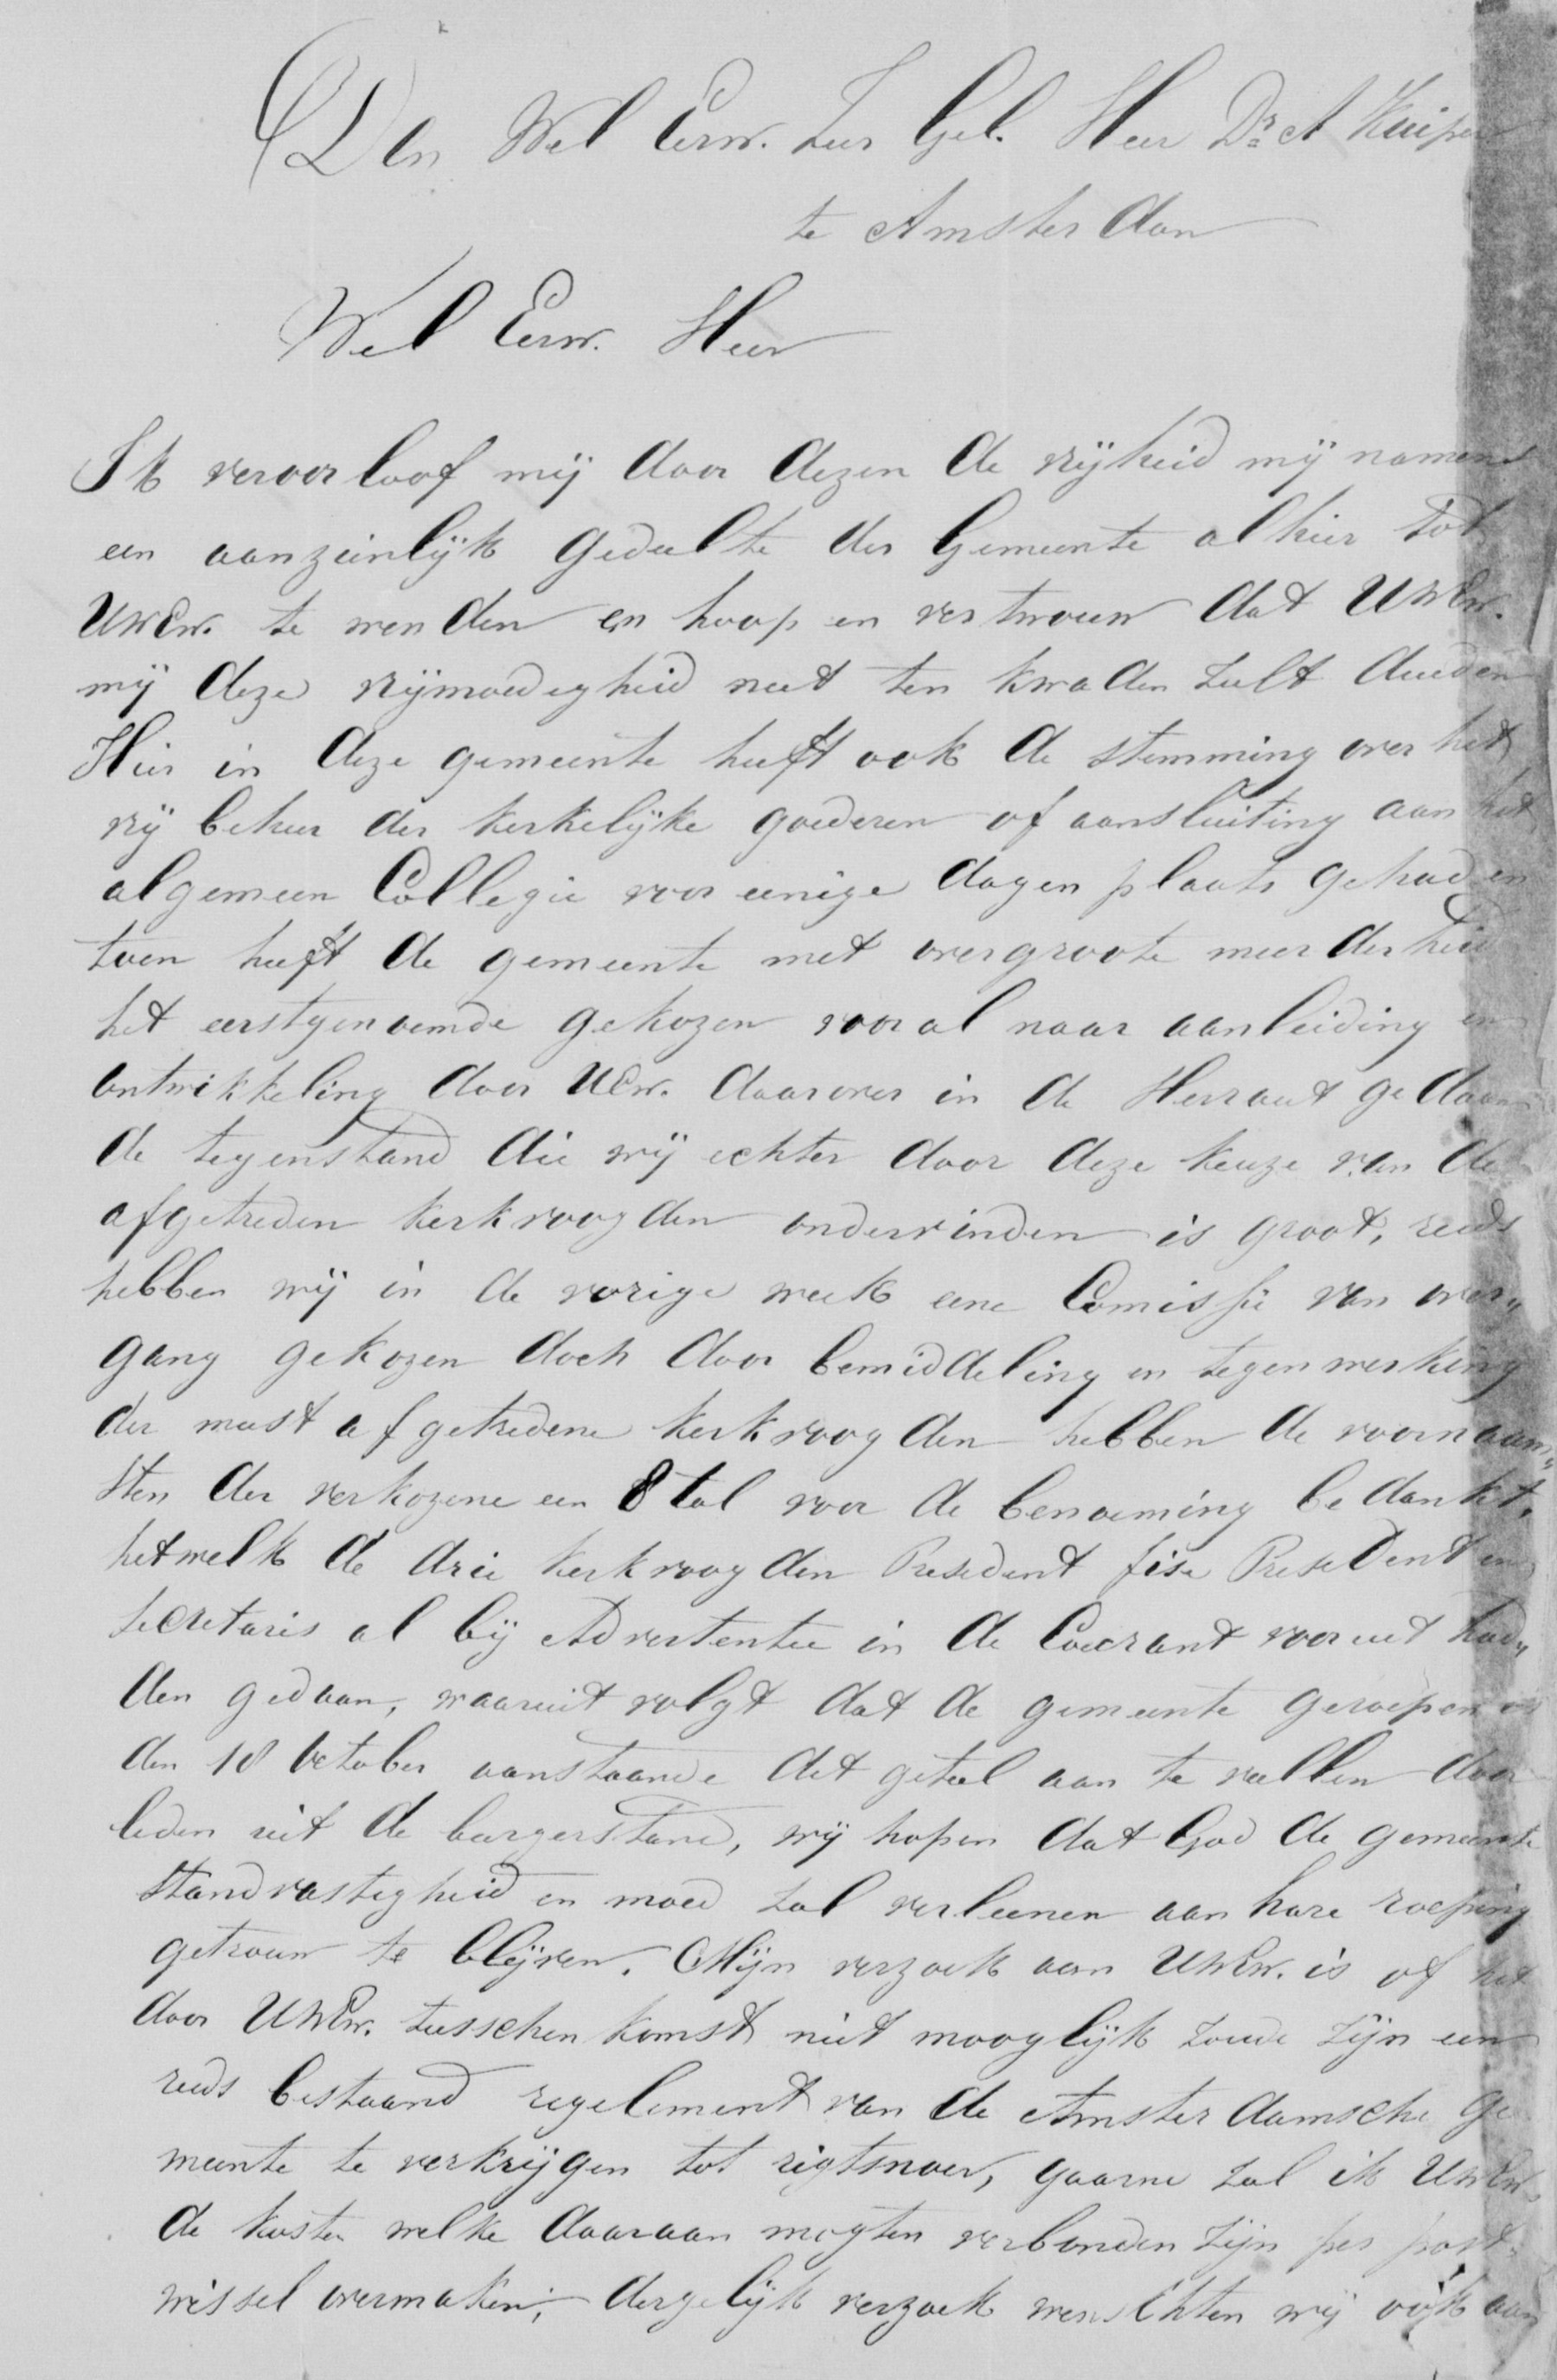 Den Wel Eerw. Zeer Gel. Heer Dr. A Kuiper
te Amsterdam
Wel Eerw. Heer
Ik veroorloof mij door dezen de vrijheid mij namens
een aanzienlijk gedeelte der Gemeente alhier tot
UwEw. te wenden en hoop en vertrouw dat UwEw.
mij deze vrijmoedigheid niet ten kwaden zult duiden
Hier in deze gemeente heeft ook de stemming over het
vrij beheer der kerkelijke goederen of aansluiting aan het
algemeen Collegie voor eenige dagen plaats gehad en
toen heeft de gemeente met overgroote meerderheid
het eerstgenoemde gekozen vooral naar aanleiding en
ontwikkeling door UEw. daarover in de Herraut gedaan
de tegenstand die wij echter door deze keuze van de
afgetreden kerkvoogden ondervinden is groot, reeds
hebben wij in de vorige week eene Comissie van over„
gang gekozen doch door bemiddeling en tegenwerking
der meest afgetredene kerkvoogden hebben de voornaam„
sten der verkozene een 8 tal voor de benoeming bedankt.
hetwelk de drie kerkvoogden President fise President en
secretaris al bij Advertentie in de Courant vooruit had„
den gedaan, waaruit volgt dat de gemeente geroepen is
den 18 October aanstaande dit getal aan te vullen door
leden uit de burgerstand, wij hopen dat God de gemeente
standvastigheid en moed zal verleenen aan hare roeping
getrouw te blijven. Mijn verzoek aan UwEw. is of het
door UwEw. tusschenkomst niet mooglijk zoude zijn een
reeds bestaand regelement van de Amsterdamsche ge
meente te verkrijgen tot rigtsnoer, gaarne zal ik UwEw.
de kosten welke daaraan mogten verbonden zijn per post„
wissel overmaken, dergelijk verzoek wenschten wij ook aan